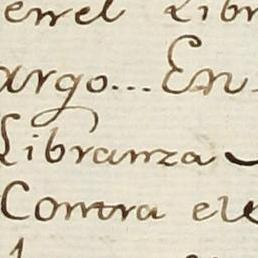 enel Libr
argo... En
Libranza
Contra el